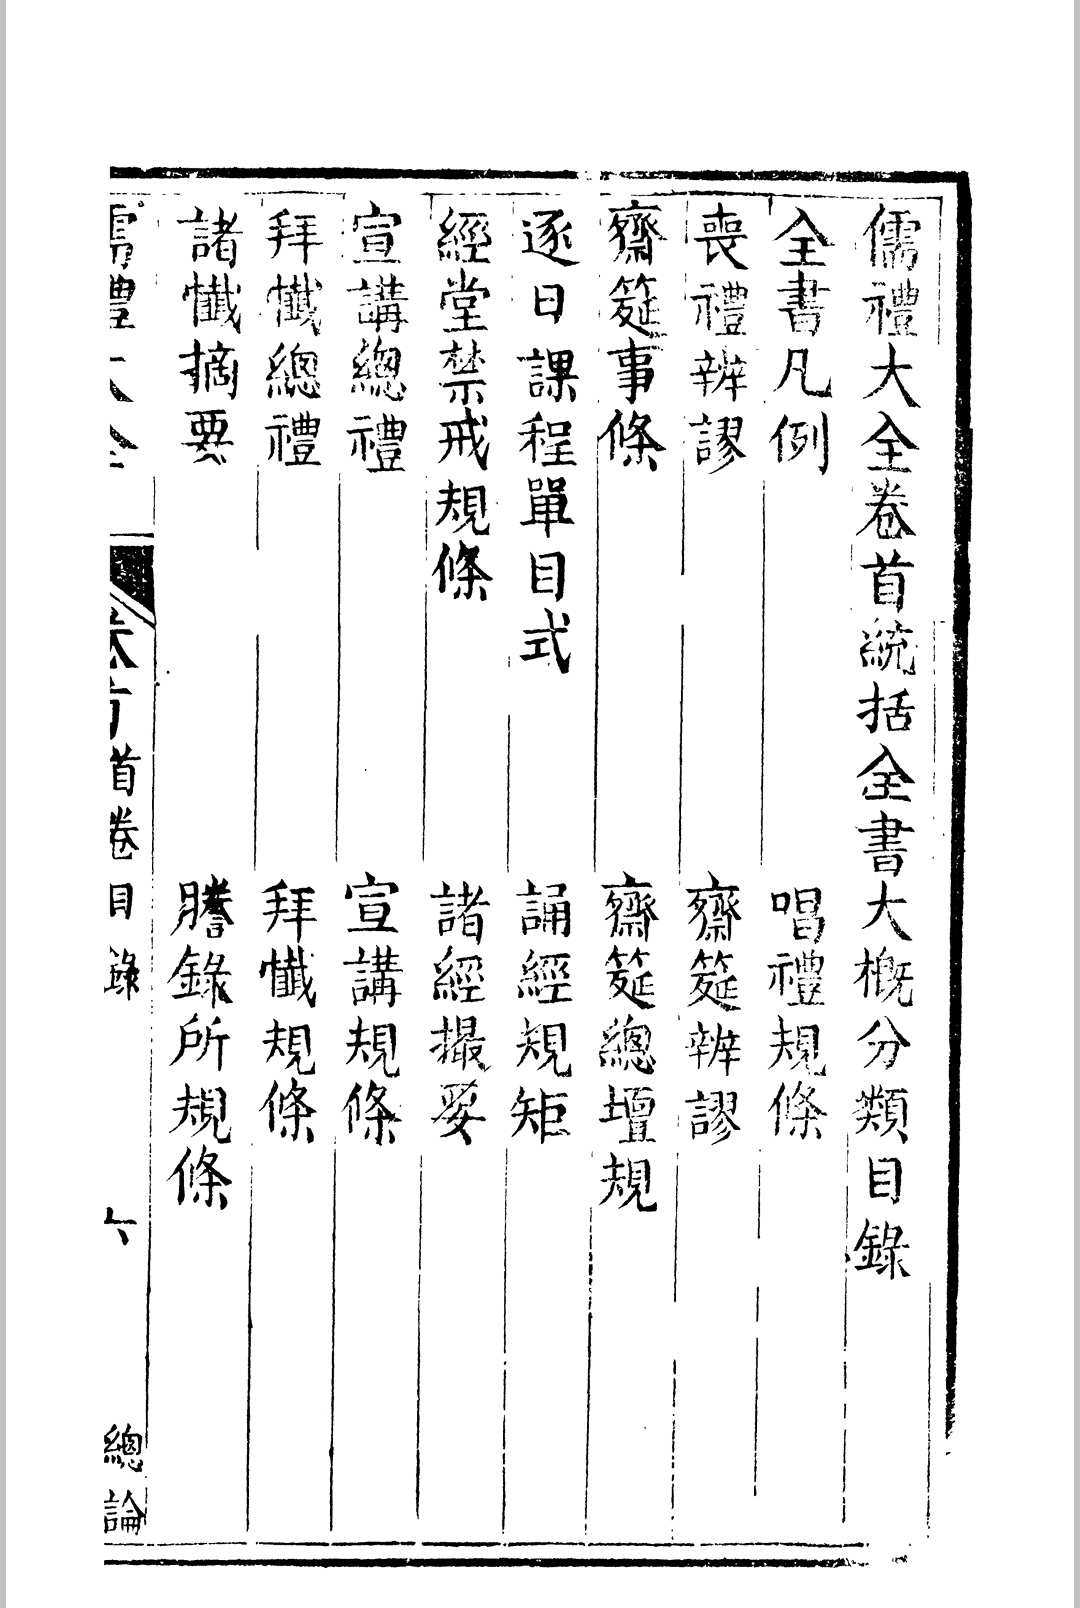 儒禮大全卷首統括全書大概分類目錄
全書凡例　唱禮規條
喪禮辨謬　齋筵辨謬
齋筵事條　齋筵總壇規
逐日課程單目式　誦經規矩
經堂禁戒規條　諸經撮要
宣講總禮　宣講規條
拜懺總禮　拜懺規條
諸懺摘要　謄錄所規條
儒禮大全　卷首　首卷目錄　六　總論